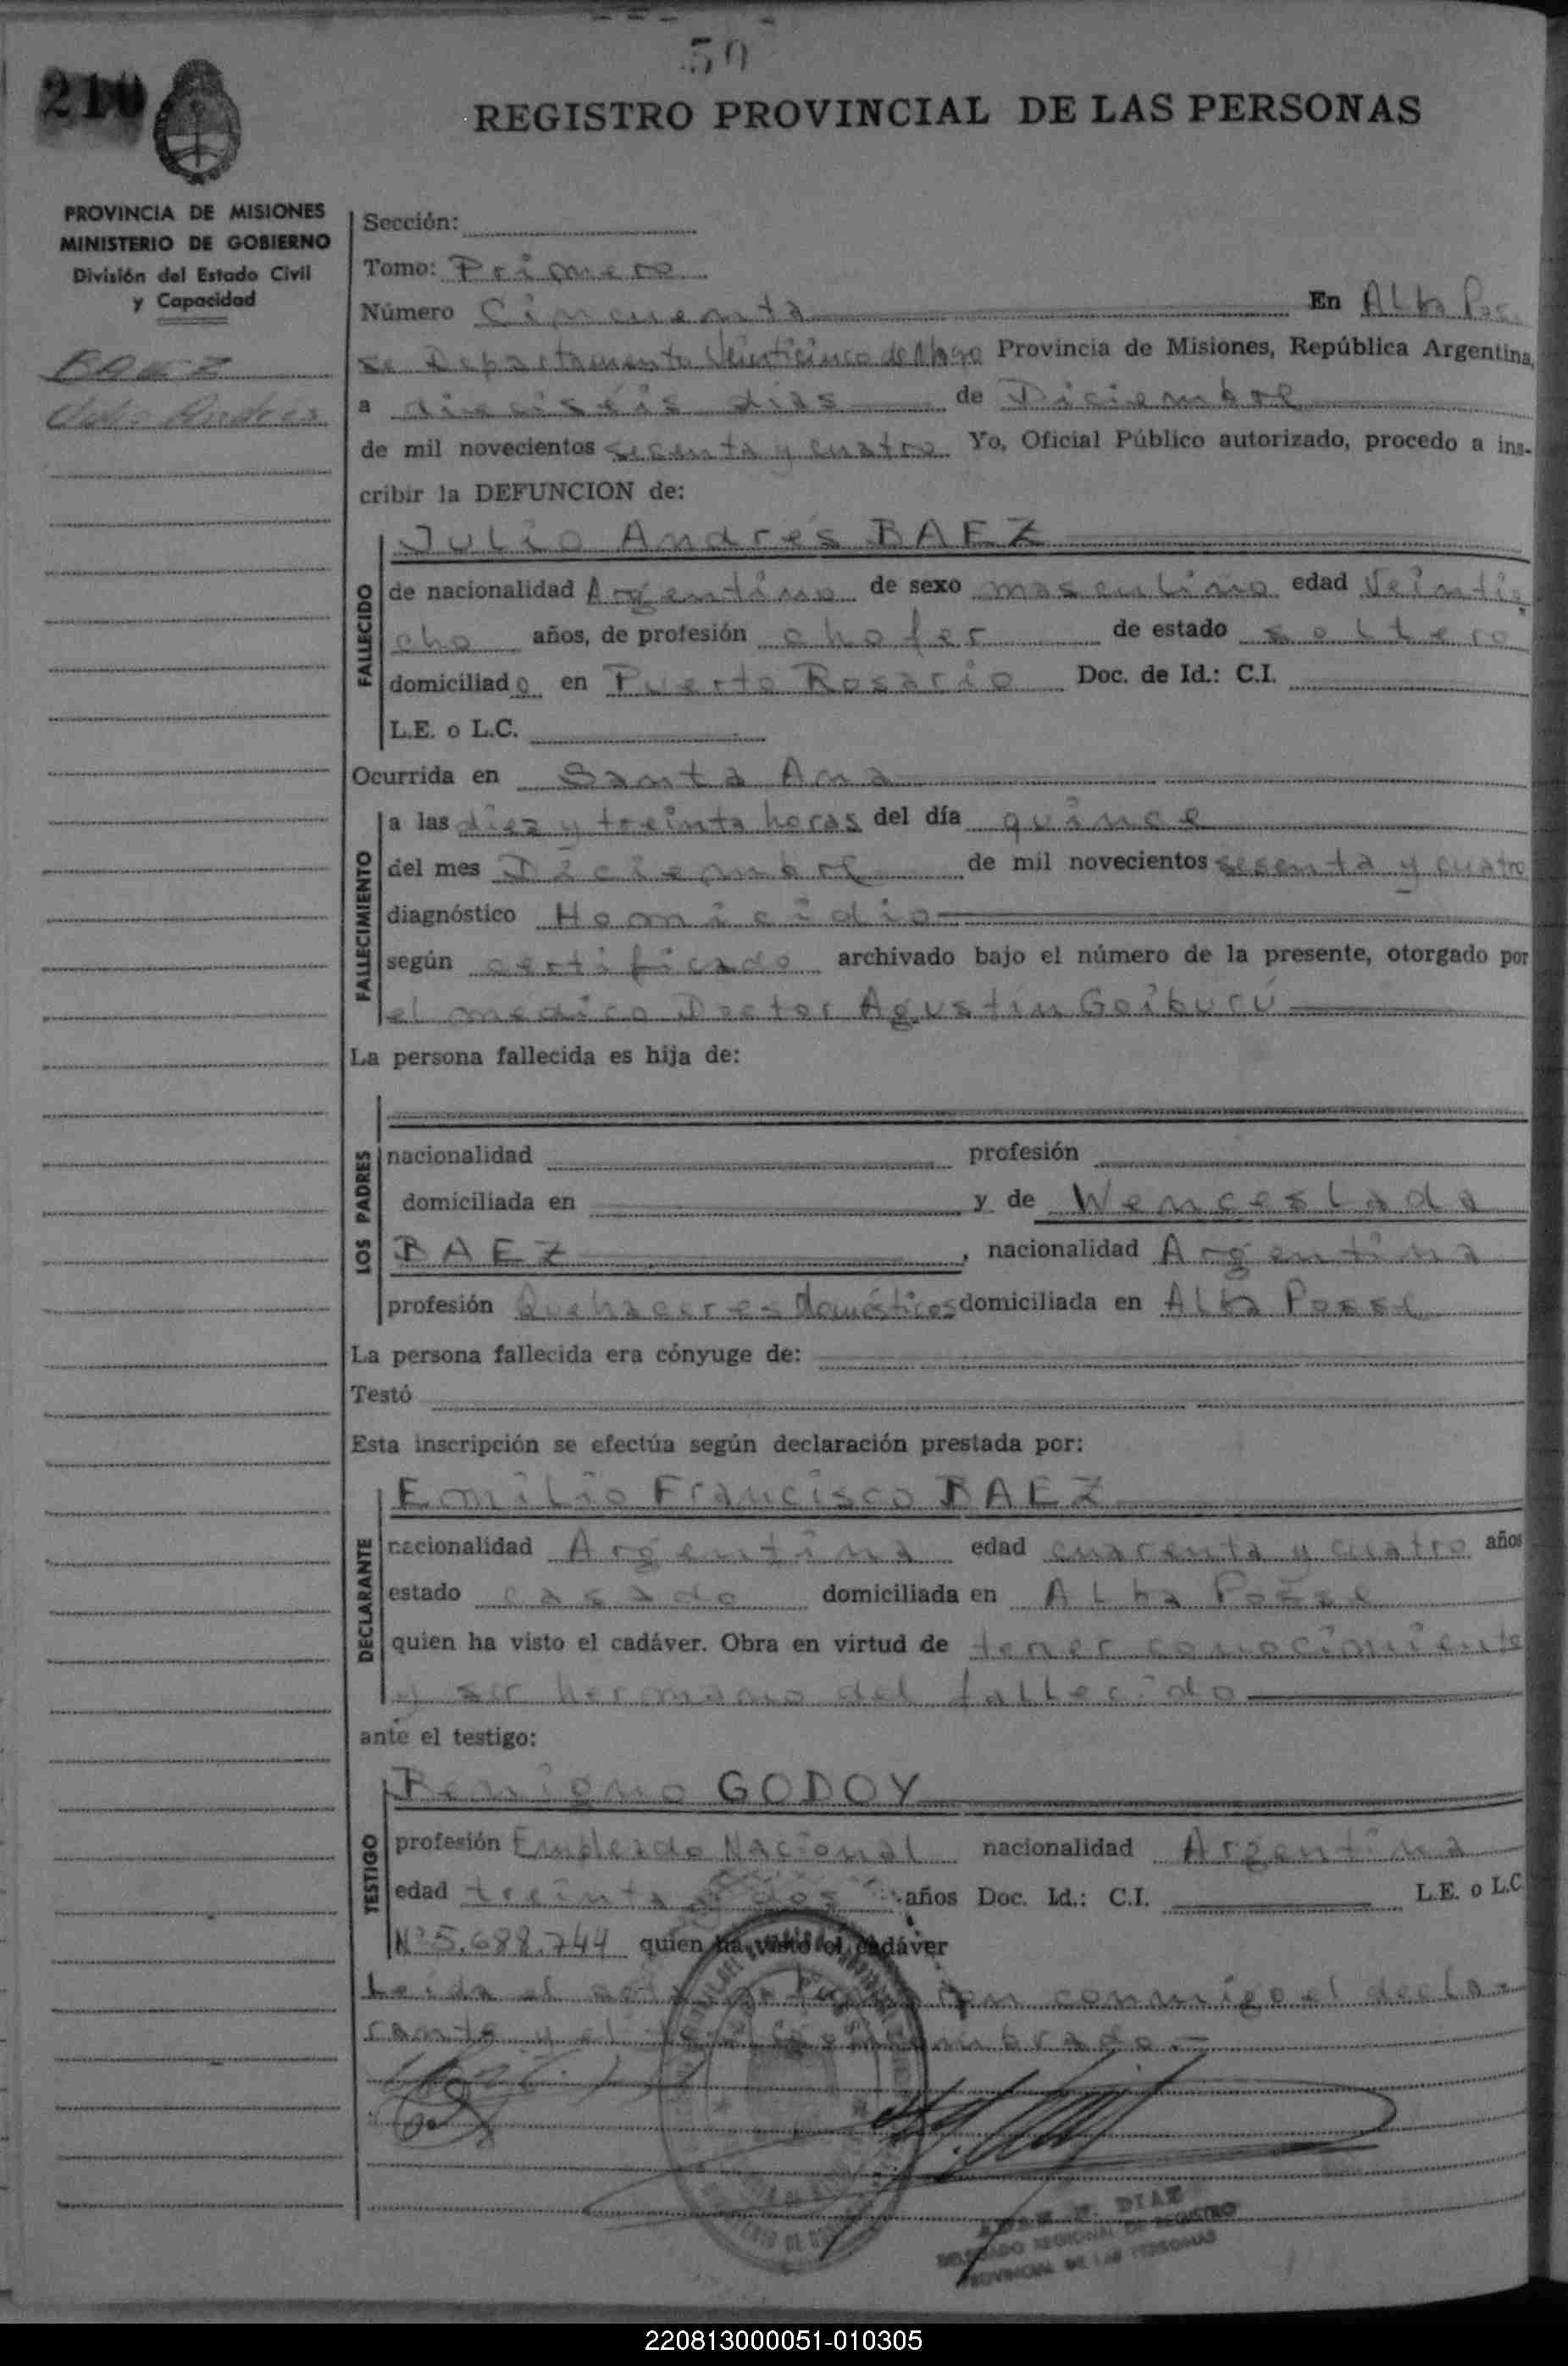 50
210
REGISTRO PROVINCIAL DE LAS PERSONAS
PROVINCIA DE MISIONES
MINISTERIO DE GOBIERNO
División del Estado Civil
y Capacidad
BAEZ
Julio Andres
Sección:
Tomo: Primero
Número Cincuenta En Alba Po
se Departamento Veinticinco de Mayo Provincia de Misiones, República Argentina,
a dieciséis días de Diciembre
de mil novecientos sesenta y cuatro Yo, Oficial Público autorizado, procedo a ins-
cribir la DEFUNCION de:
FALLECIDO
Julio Andrés BAEZ
de nacionalidad Argentino de sexo masculino edad Veintio
cho años, de profesión chofer de estado soltero
domiciliado en Puerto Rosario Doc. de Id.: C.I.
L.E. o L.C.
Ocurrida en Santa Ana
FALLECIMIENTO
a las diez y treinta horas del día quince
del mes Diciembre de mil novecientos sesenta y cuatro
diagnóstico Homicidio
según certificado archivado bajo el número de la presente, otorgado por
el medico Doctor Agustín Goiburú
La persona fallecida es hija de:
LOS PADRES
nacionalidad profesión
domiciliada en y de Wenceslada
BAEZ, nacionalidad Argentina
profesión Quehaceres domésticos domiciliada en Alba Posse
La persona fallecida era cónyuge de:
Testó
Esta inscripción se efectúa según declaración prestada por:
DECLARANTE
Emilio Francisco BAEZ
nacionalidad Argentina edad cuarenta y cuatro años
estado casado domiciliada en Alba Posse
quien ha visto el cadáver. Obra en virtud de tener conocimiento
y ser hermano del fallecido
ante el testigo:
TESTIGO
Benigno GODOY
profesión Empleado Nacional nacionalidad Argentina
edad treinta y dos años Doc. Id.: C.I. L.E. o L.C
Nº 5.688.744 quien ha visto el cadáver
Leída el acta conmigo el decla-
rante y el testigo nombrado.-
DIAZ
DELEGADO REGIONAL DE REGISTRO
PROVINCIAL DE LAS PERSONAS
220813000051-010305